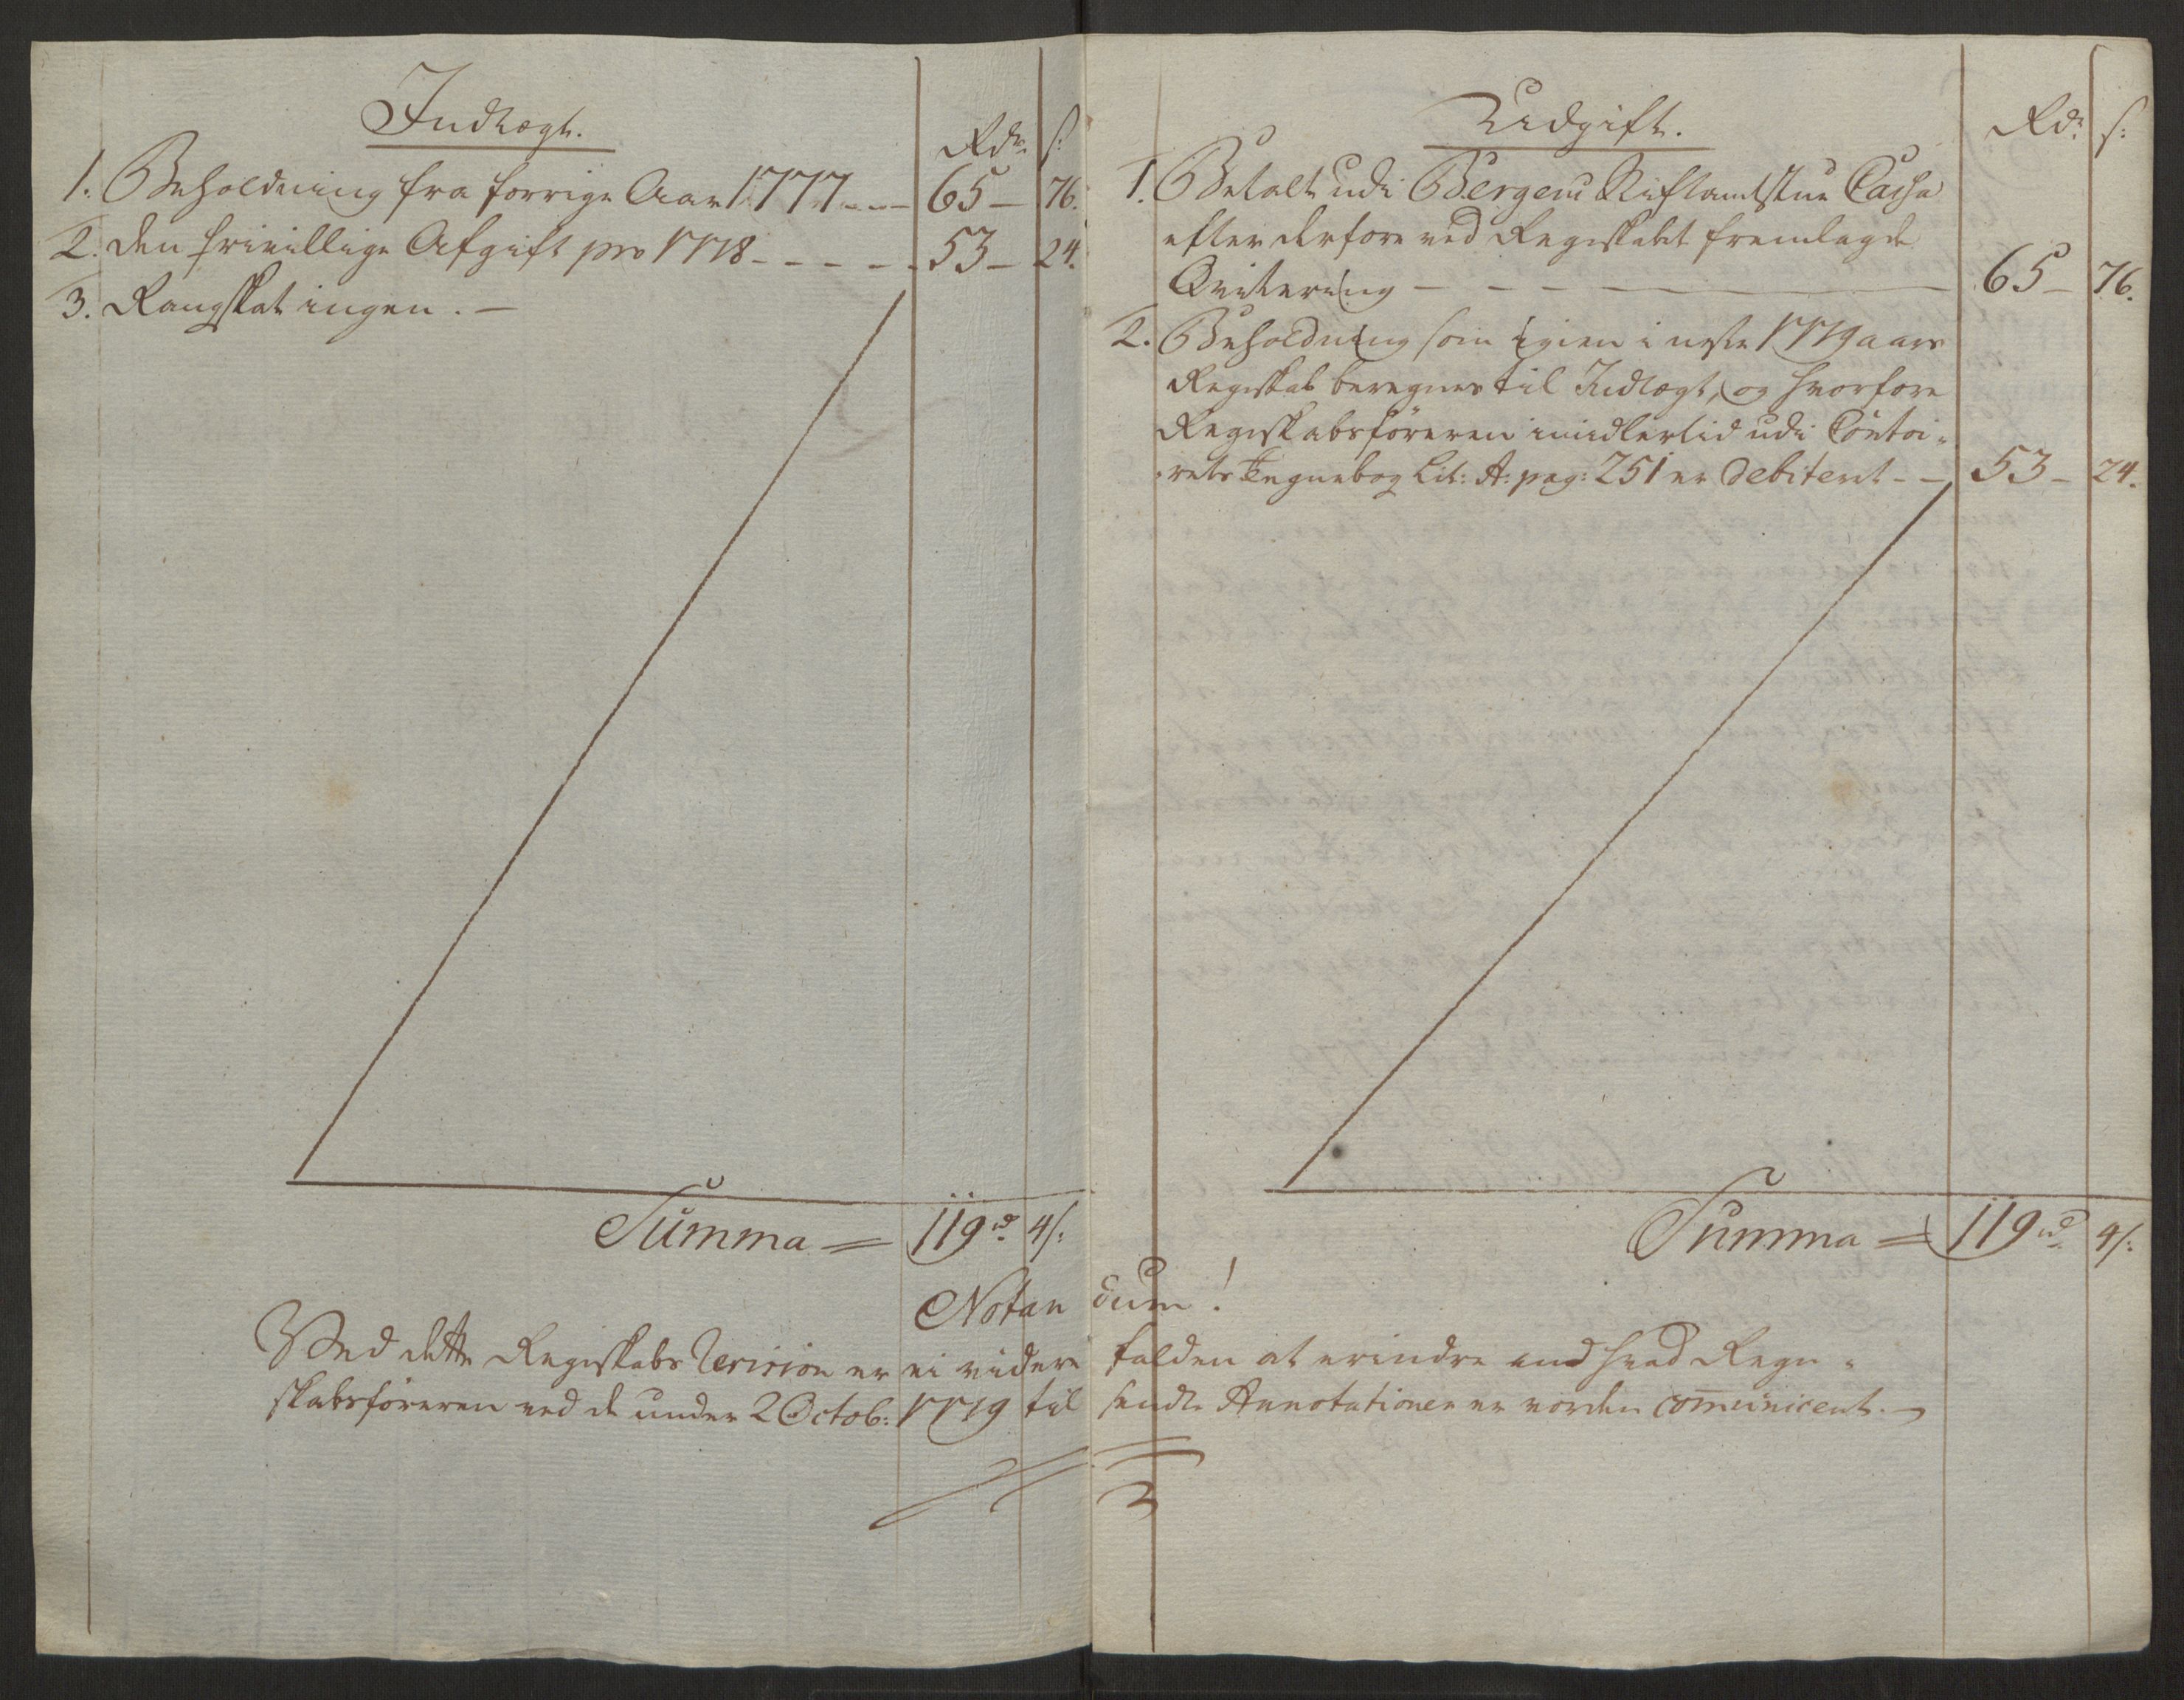 Indtægt.
Rdr. s:
1. Beholdning fra forrige Aar 1777 --- 65 - 76.
2. den frivillige Afgift pro 1778 ----- 53 - 24.
3. Rangskat ingen. -
Summa = 119 rd. 4 s:
Udgift.
Rdr. s:
1. Betalt udi Bergens Stiftamtstue Cassa
efter derfore ved Regnskabet fremlagde
Qvitering - - - - 65 - 76.
2. Beholdning som igien i neste 1779 aars
Regnskab beregnes til Indtægt, og hvorfore
Regnskabsføreren imidlertid udi Contoi-
rets Tegnebog Lit: A: pag: 251 er debiteret - - 53 - 24.
Summa = 119 rd. 4 s:
Notandum!
Ved dette Regnskabs Revision er ei videre falden at erindre end hvad Regn-
skabsføreren ved de under 2 Octob: 1779 til sendte Annotationer er vorden com̅uniceret.